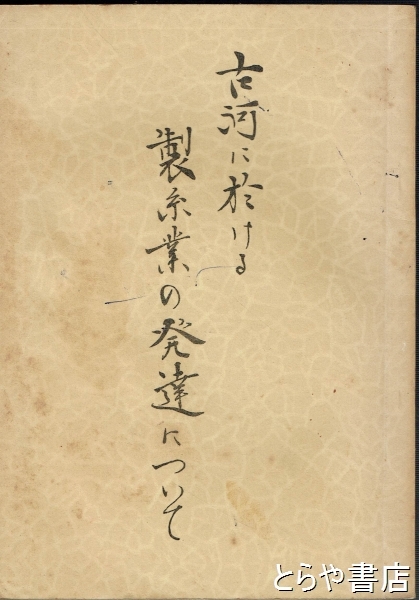 古河に於ける
製糸業の発達について
とらや書店